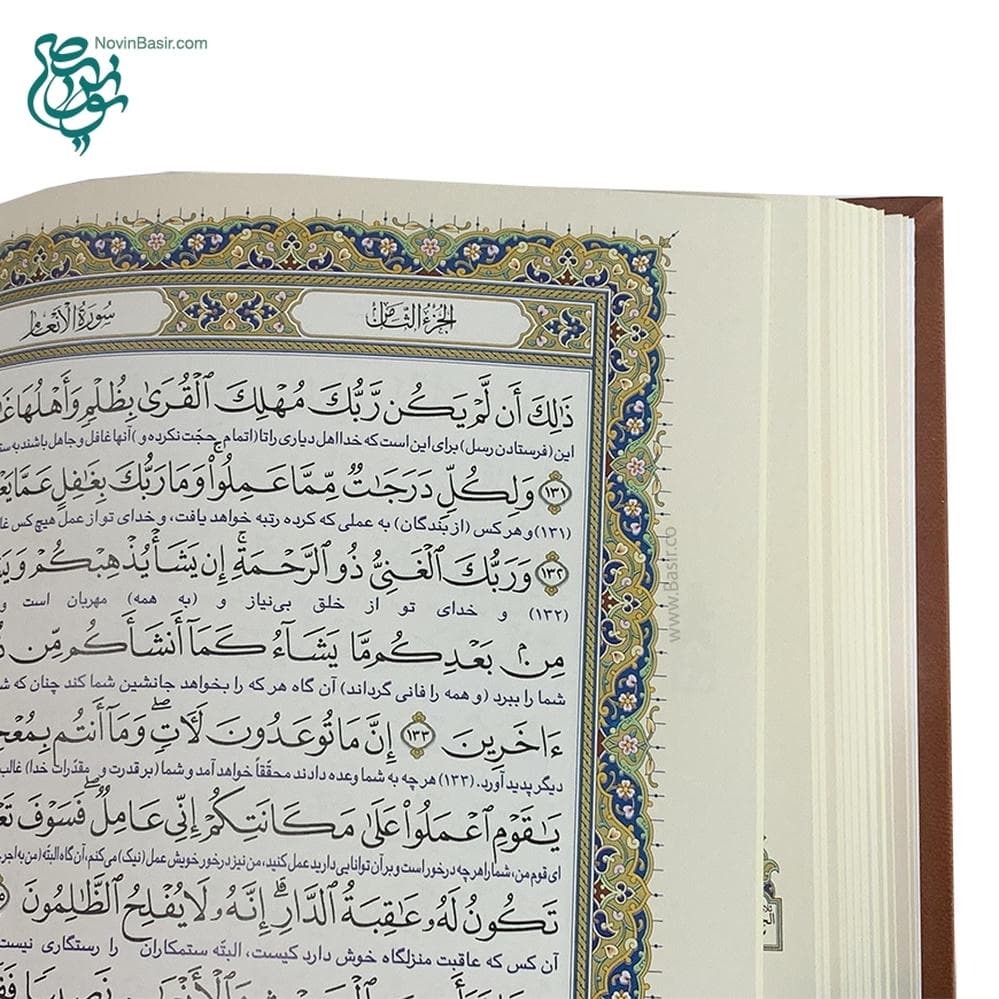 NovinBasir.com
الجزء الثامن
سورة الأنعام
ذَٰلِكَ أَن لَّمْ يَكُن رَّبُّكَ مُهْلِكَ ٱلْقُرَىٰ بِظُلْمٍ وَأَهْلُهَا
این (فرستادن رسل) برای این است که خدا اهل دیاری را تا (اتمام حجّت نکرده و) آنها غافل و جاهل باشند به
﴿١٣١﴾ وَلِكُلٍّ دَرَجَٰتٌ مِّمَّا عَمِلُوا۟ وَمَا رَبُّكَ بِغَٰفِلٍ عَمَّا
(۱۳۱) و هر کس (از بندگان) به عملی که کرده رتبه خواهد یافت، و خدای تو از عمل هیچ کس
﴿١٣٢﴾ وَرَبُّكَ ٱلْغَنِىُّ ذُو ٱلرَّحْمَةِ ۚ إِن يَشَأْ يُذْهِبْكُمْ
(۱۳۲) و خدای تو از خلق بی‌نیاز و (به همه) مهربان است و
مِنۢ بَعْدِكُم مَّا يَشَآءُ كَمَآ أَنشَأَكُم مِّن
شما را ببرد (و همه را فانی گرداند) آن گاه هر که را بخواهد جانشین شما کند چنان که
ءَاخَرِينَ ﴿١٣٣﴾ إِنَّ مَا تُوعَدُونَ لَـَٔاتٍ ۖ وَمَآ أَنتُم
دیگر پدید آورد. (۱۳۳) هر چه به شما وعده دادند محقّقاً خواهد آمد و شما (بر قدرت و مقدّرات خدا) غالب
يَٰقَوْمِ ٱعْمَلُوا۟ عَلَىٰ مَكَانَتِكُمْ إِنِّى عَامِلٌ ۖ فَسَوْفَ
ای قوم من، شما را هر چه در خور است و بر آن توانایی دارید عمل کنید، من نیز در خور خویش عمل (نیک) می‌کنم، آن گاه البتّه (من به اجر
تَكُونُ لَهُۥ عَٰقِبَةُ ٱلدَّارِ ۗ إِنَّهُۥ لَا يُفْلِحُ ٱلظَّٰلِمُونَ
آن کس که عاقبت منزلگاه خوش دارد کیست، البتّه ستمکاران را رستگاری نیست
www.Basir.co